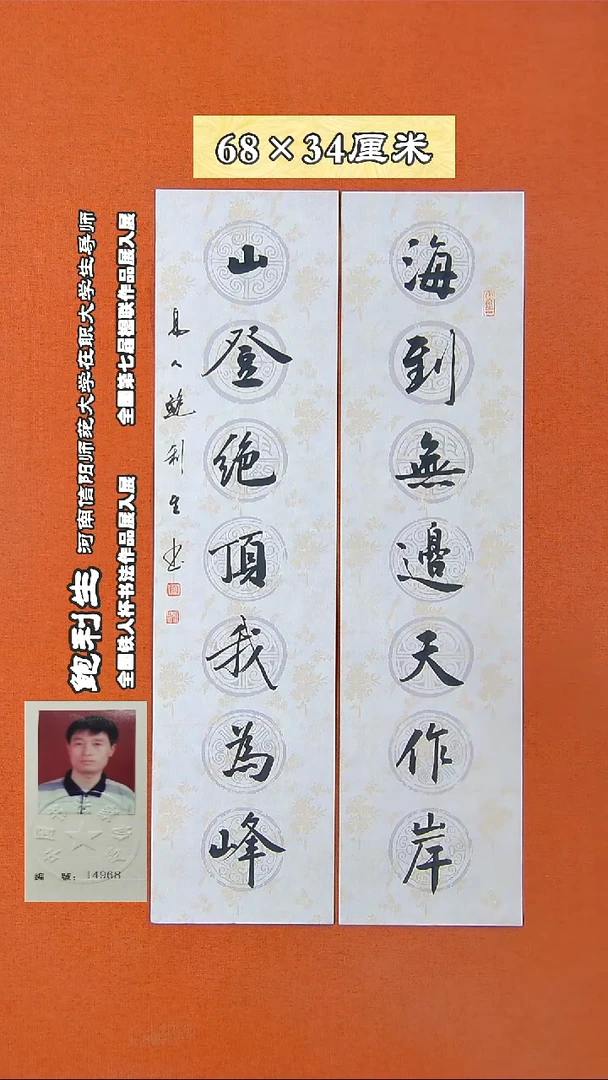 68×34厘米
海到無邊天作岸
山登絶頂我為峰
息人鲍利生书
鲍利生 河南信阳师范大学在职大学生导师
全國铁人杯书法作品展入展 全國第七届楹联作品展入展
编 號：14968